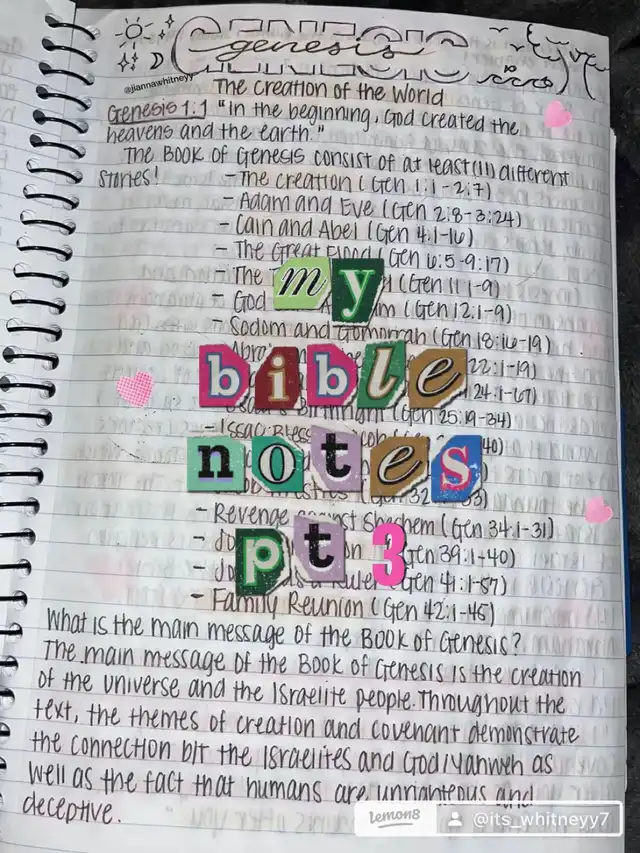 GENESIS
genesis
@jiannawhitneyy
The Creation of the World
Genesis 1:1 "In the beginning, God created the
heavens and the earth."
The BOOK OF Genesis consist of at least (11) different
stories!
- The creation (Gen 1:1-2:7)
- Adam and Eve (Gen 2:8-3:24)
- Cain and Abel (Gen 4:1-16)
- The Great Flood (Gen 6:5-9:17)
- The (Gen 11:1-9)
my
- God (Gen 12:1-9)
- Sodom and Gomorrah (Gen 18:16-19)
22:1-19)
bible
24:1-67)
Birthright (Gen 25:19-34)
- Issac Bless
40)
notes
(Gen 32
33)
- Revenge against Shechem (Gen 34:1-31)
(Gen 39:1-40)
pt 3
Ruler (Gen 41:1-57)
- Family Reunion (Gen 42:1-45)
What is the main message of the BOOK of Genesis?
The main message of the BOOK of Genesis is the creation
of the universe and the Israelite people. Throughout the
text, the themes of creation and covenant demonstrate
the connection b/t the Israelites and God/Yahweh as
well as the fact that humans are unrighteous and
deceptive.
lemon8 @its_whitneyy7